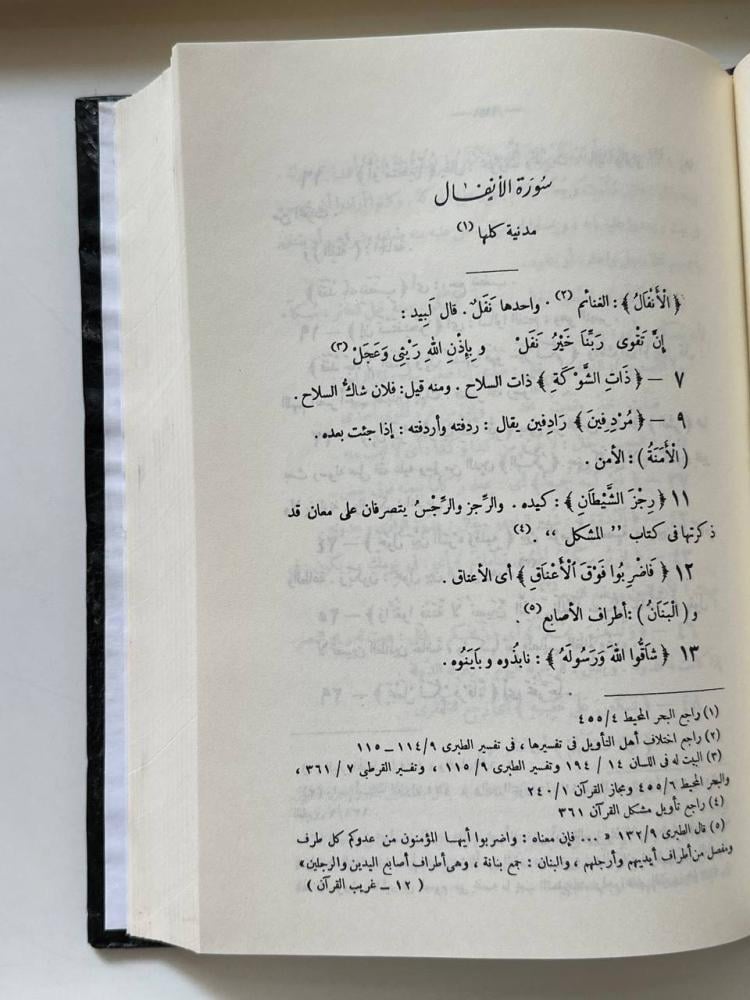 سُورَة الأنفال
مدنية كلها (١)
﴿ الْأَنْفَالُ ﴾ : الغنائم (٢) . واحدها نَفَلٌ . قال لَبِيد :
إِنَّ تَقْوى رَبِّنَا خَيْرُ نَفَلْ وبِإِذْنِ اللهِ رَيْثِى وَعَجَلْ (٣)
٧ – ﴿ ذَاتِ الشَّوْكَةِ ﴾ ذات السلاح . ومنه قيل : فلان شاكُّ السلاح .
٩ – ﴿ مُرْدِفِينَ ﴾ رَادِفين يقال : ردفته وأردفته : إذا جئت بعده .
( الْأَمَنَةُ ) : الأمن .
١١ ﴿ رِجْزَ الشَّيْطَانِ ﴾ : كيده . والرِّجز والرِّجْسُ يتصرفان على معان قد
ذكرتها فى كتاب " المشكل " . (٤)
١٢ ﴿ فَاضْرِبُوا فَوْقَ الْأَعْنَاقِ ﴾ أى الأعناق .
و ( الْبَنَانُ ) : أطراف الأصابع (٥) .
١٣ ﴿ شَاقُّوا اللهَ وَرَسُولَهُ ﴾ : نابذُوه وبايَنُوه .
(١) راجع البحر المحيط ٤/٤٥٥
(٢) راجع اختلاف أهل التأويل فى تفسيرها ، فى تفسير الطبرى ٩/١١٤ – ١١٥
(٣) البيت له فى اللسان ١٤ / ١٩٤ وتفسير الطبرى ٩/١١٥ ، وتفسير القرطبى ٧ / ٣٦١ ،
والبحر المحيط ٦/٤٥٥ ومجاز القرآن ١/٢٤٠
(٤) راجع تأويل مشكل القرآن ٣٦١
(٥) قال الطبرى ٩/١٣٢ « ... فإن معناه : واضربوا أيهـا المؤمنون من عدوكم كل طرف
ومفصل من أطراف أيديهم وأرجلهم ، والبنان : جمع بنانة ، وهى أطراف أصابع اليدين والرجلين »
( ١٢ – غريب القرآن )